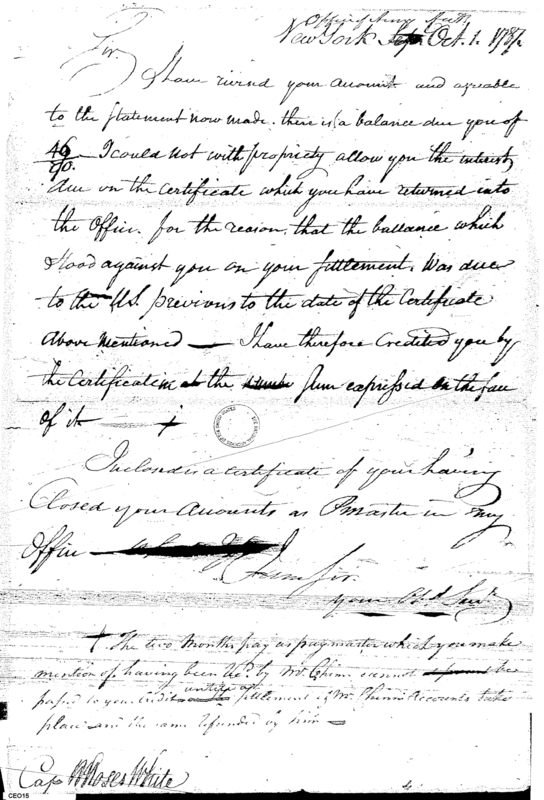 Office of Army
New York Oct. 1. 1787
Sir.
I have revised your account and agreable
to the Statement now made. there is a balance due you of
46/90. I could not with propriety allow you the interest
due on the certificate which you have returned into
the Office. for the reason. that the ballance which
Stood against you on your settlement. was due
to the U.S. previous to the date of the Certificate
above mentioned — I have therefore credited you by
the Certificate at the Sum expressed on the face
of it — +
Inclosed is a certificate of your having
Closed your Accounts as P master in my
Office
I am Sir.
your Obd. Serv.
+ The two Months pay as paymaster which you make
mention of having been by Mr. cannot be
passed to your Credit untill a settlement of Mr. Accounts take
place and the same refunded by him —
Cap Moses White
CEO15